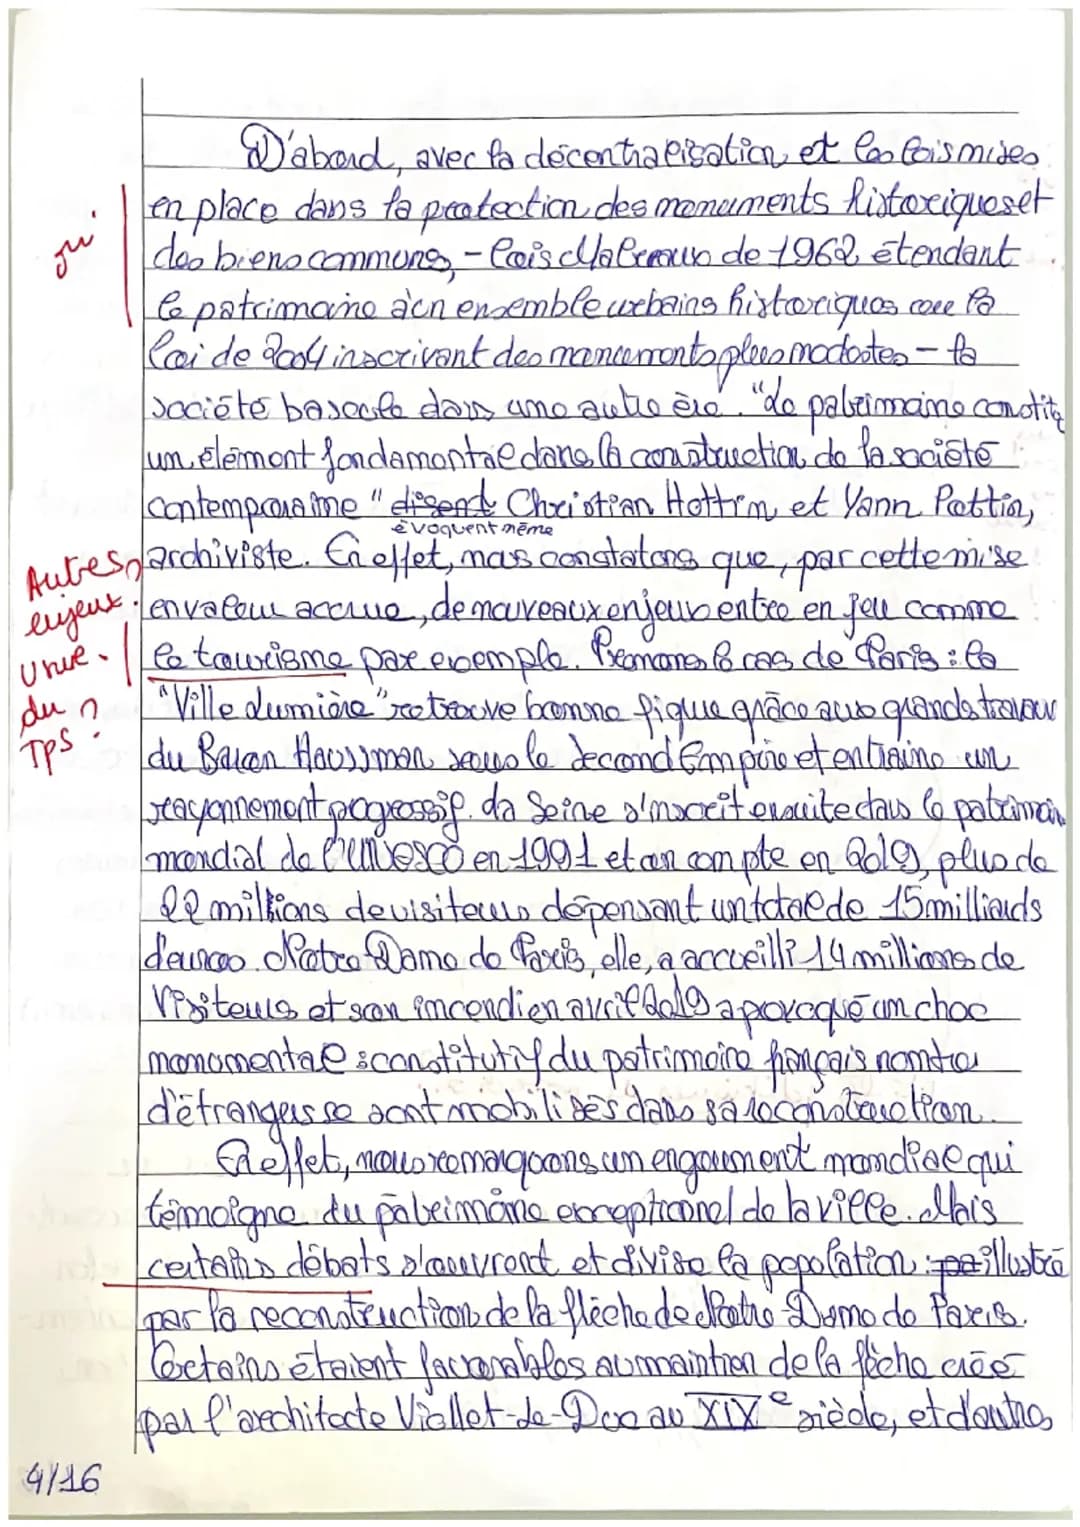 D'abord, avec la décentralisation et les lois mises
en place dans la protection des monuments historiques et
oui.
des biens communs, - lois Malraux de 1962 étendant
le patrimoine à un ensemble urbains historiques ou la
loi de 2004 inscrivant des monuments plus modestes - la
société bascule dans une autre ère. "Le patrimoine constitue
un élément fondamental dans la construction de la société
contemporaine" disent Christian Hottin et Yann Pottin,
évoquent même
Autres
archiviste. En effet, nous constatons que, par cette mise
enjeux.
en valeur accrue, de nouveaux enjeux entre en jeu comme
le tourisme par exemple. Prenons le cas de Paris : la
du
"Ville Lumière" retrouve bonne figure grâce aux grands travaux
TPS ?
du Baron Haussman sous le Second Empire et entraine un
rayonnement progressif. La Seine s'inscrit ensuite dans le patrimoine
mondial de l'UNESCO en 1991 et on compte en 2019, plus de
22 millions de visiteurs dépensant un total de 15 milliards
d'euros. Notre Dame de Paris, elle, a accueilli 14 millions de
Visiteurs et son incendie en avril 2019 a provoqué un choc
monumental : constitutif du patrimoine français nombre
d'étrangers se sont mobilisés dans sa reconstruction.
En effet, nous remarquons un engoument mondial qui
témoigne du patrimoine exceptionnel de la ville. Mais
certains débats s'ouvrent et divise la population : illustré
par la reconstruction de la flèche de Notre-Dame de Paris.
Certains étaient favorables au maintien de la flèche créé
par l'architecte Viollet-le-Duc au XIXe siècle, et d'autres
4/16